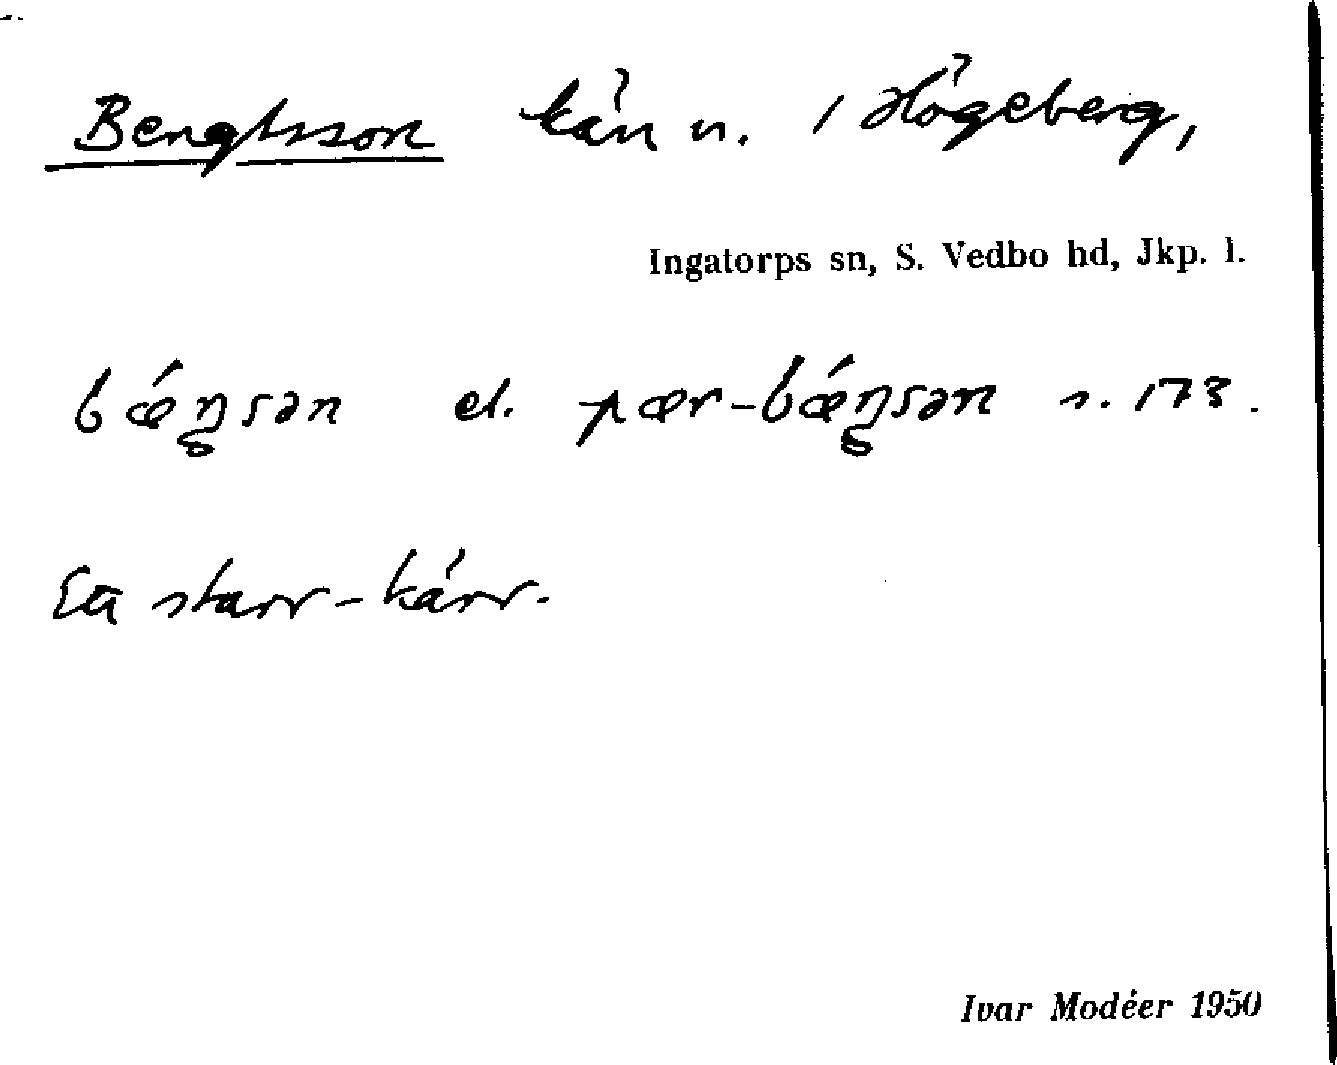 Bengtsson kärr n. / Högeberg,
Ingatorps sn, S. Vedbo hd, Jkp. l.
bǽŋsən el. pær-bǽŋsən s. 173.
Ett starr-kärr.
Ivar Modéer 1950